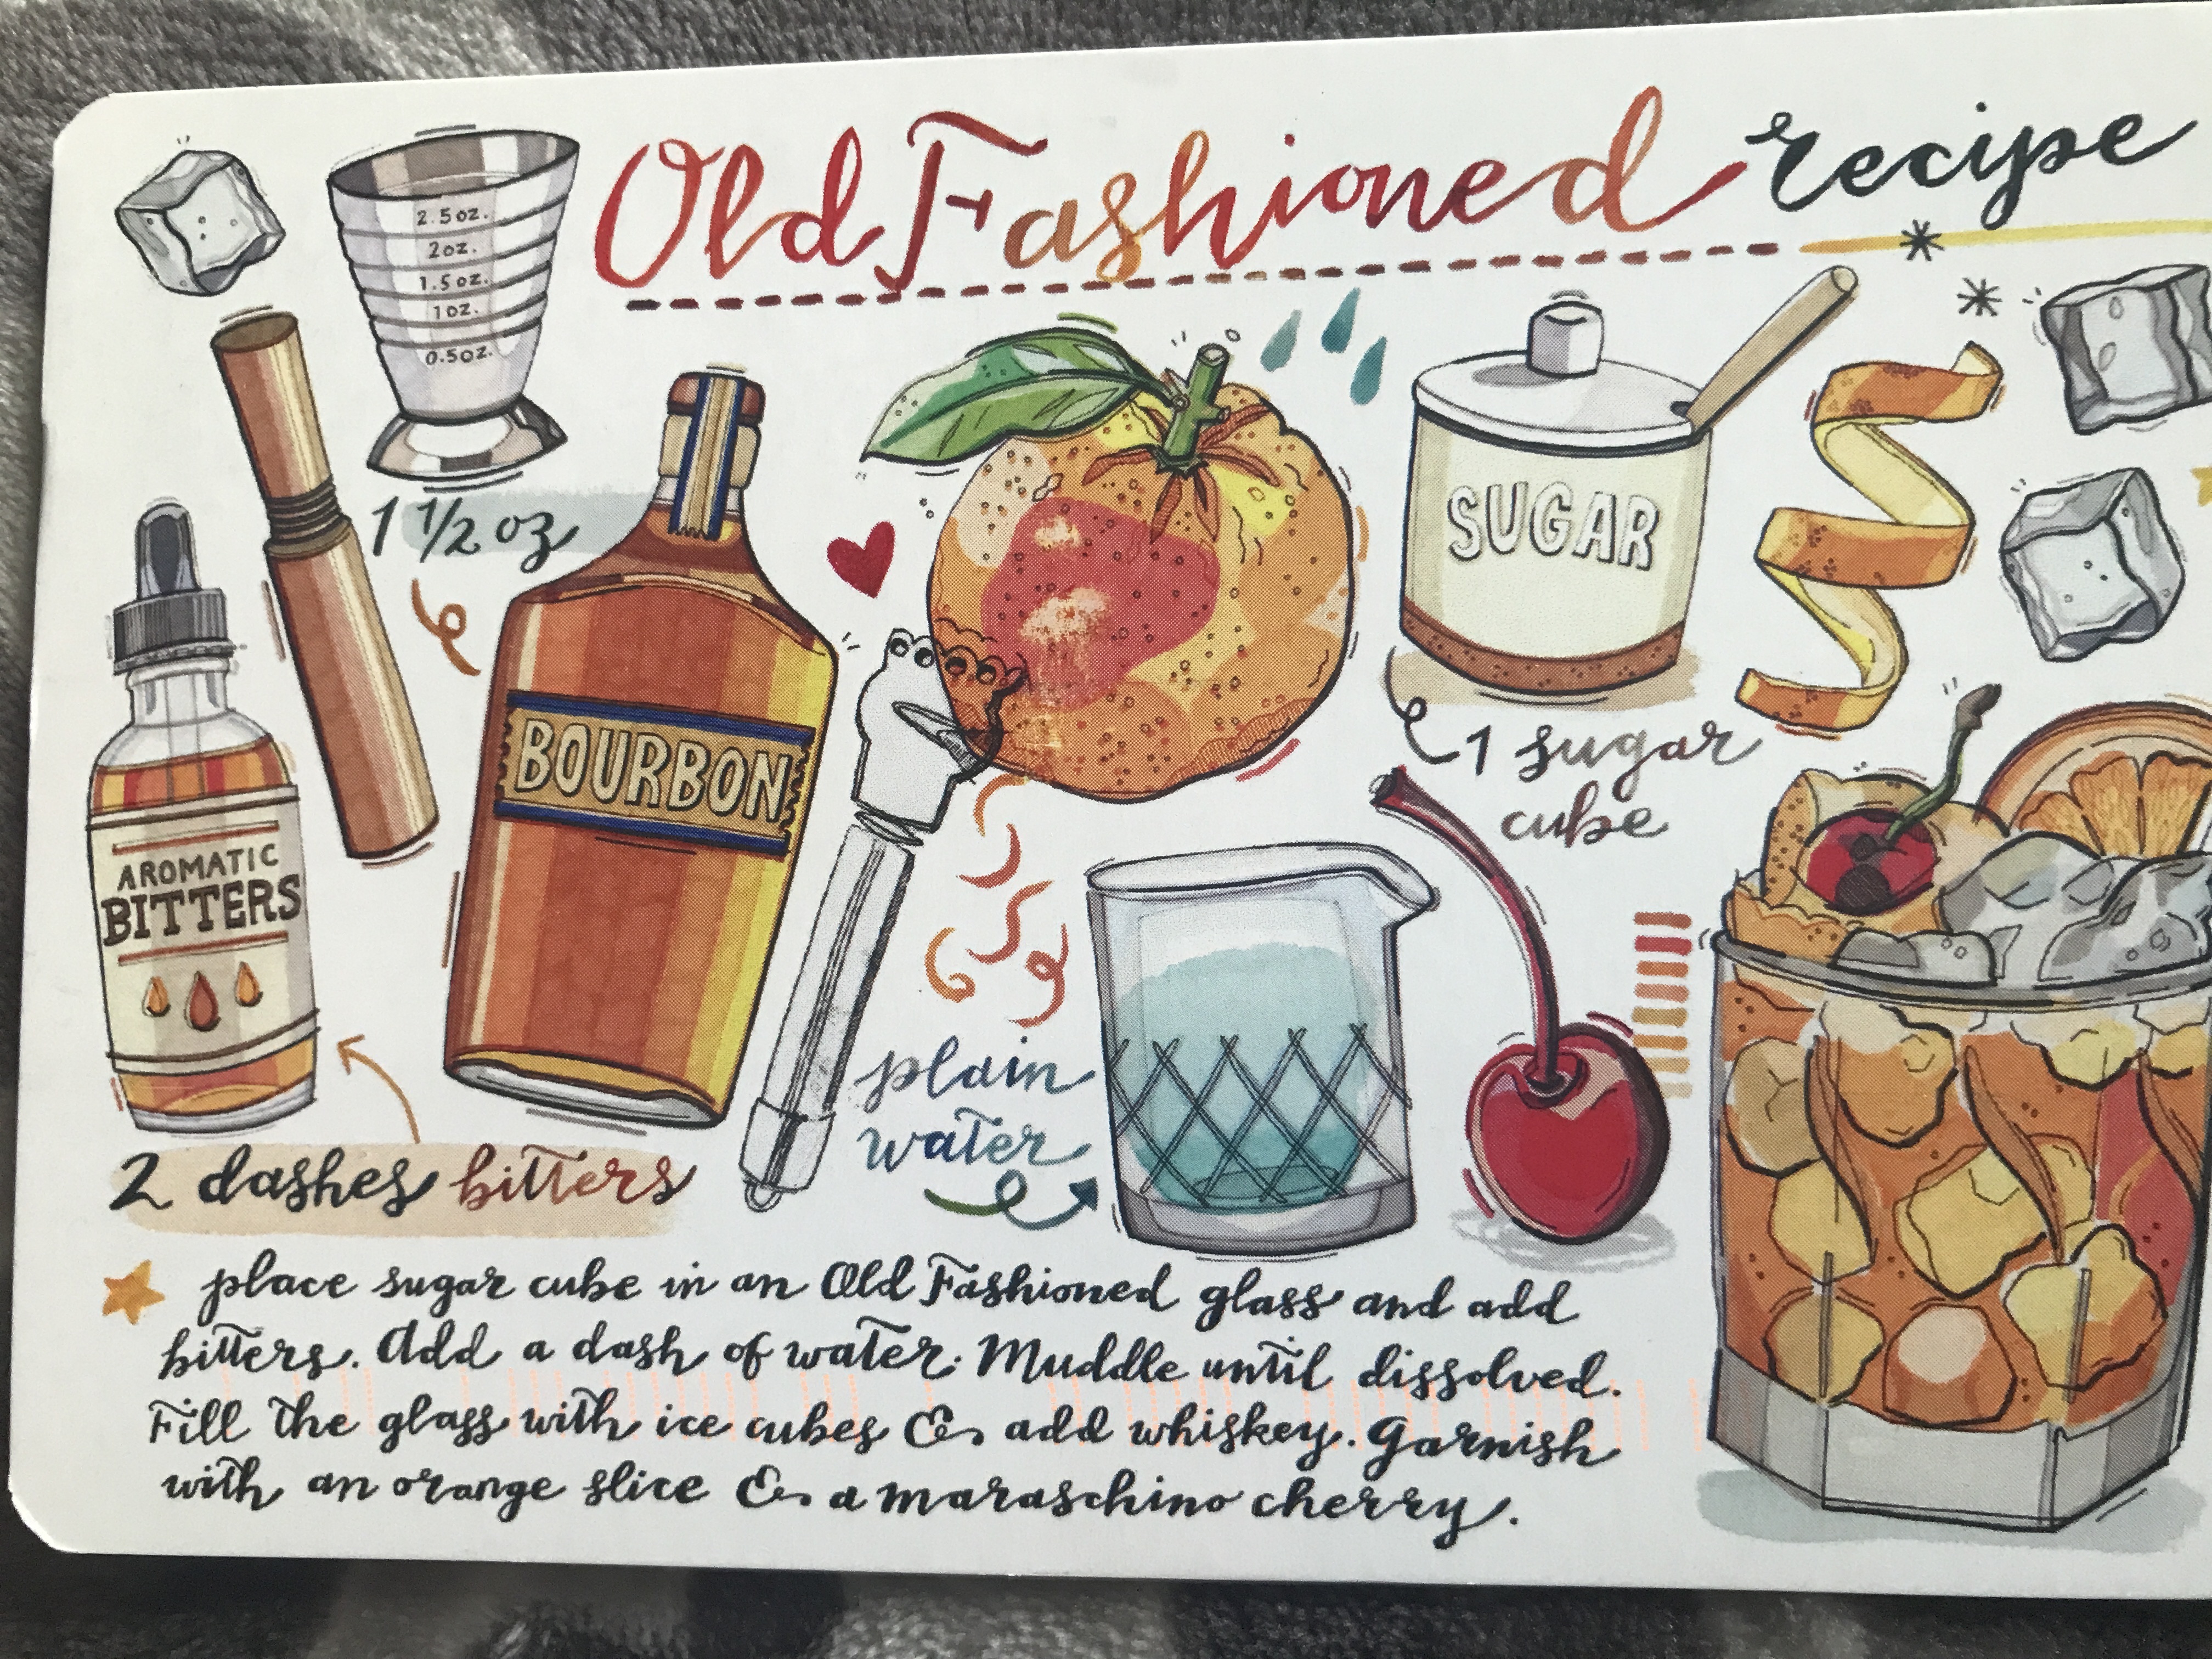 Old Fashioned recipe
2.5 oz.
2 oz.
1.5 oz.
1 oz.
0.5 oz.
1 1/2 oz
SUGAR
BOURBON
1 sugar
cube
AROMATIC
BITTERS
plain
water
2 dashes bitters
place sugar cube in an Old Fashioned glass and add
bitters. Add a dash of water. Muddle until dissolved.
Fill the glass with ice cubes & add whiskey. Garnish
with an orange slice & a maraschino cherry.